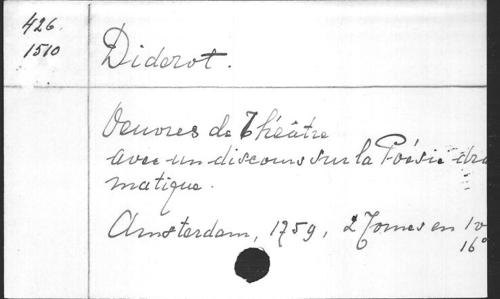 426.
1510
Diderot.
Oeuvres de Théâtre
avec un discours sur la Poésie dra
matique.
Amsterdam, 1759, 2 Tomes en 1 v
16°